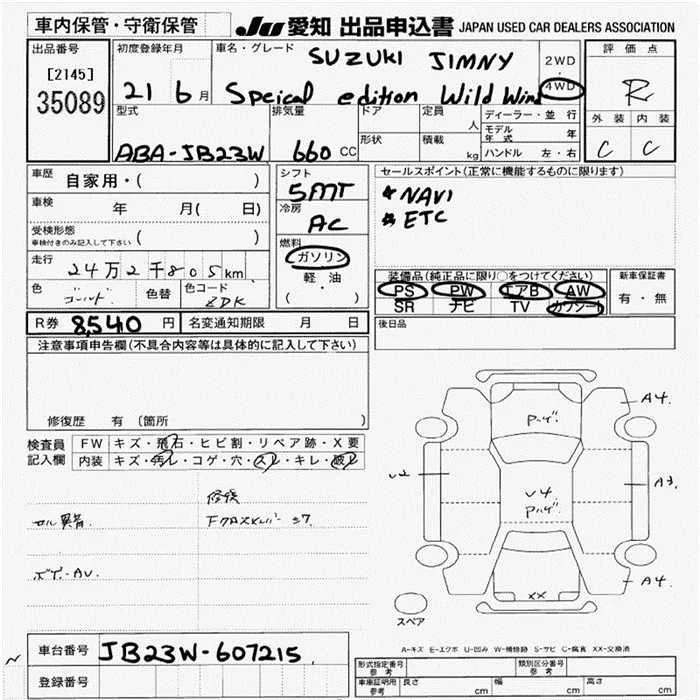 車内保管・守衛保管
JU 愛知 出品申込書 JAPAN USED CAR DEALERS ASSOCIATION
出品番号
[2145]
35089
初度登録年月
21 6 月
車名・グレード
SUZUKI JIMNY
Speical edition Wild Wind
2WD
・
4WD
評価点
R
外装 内装
C C
型式
ABA-JB23W
排気量
660 CC
ドア
形状
定員
人
積載
kg
ディーラー・並行
モデル年式 年
ハンドル 左・右
車歴 自家用・( )
車検 年 月( 日)
受検形態
車検付きのみ記入して下さい ( )
走行
24万2千805km
色 ゴールド 色替 色コード ZDK
シフト
5MT
冷房
AC
燃料
ガソリン
軽・油
( )
セールスポイント(正常に機能するものに限ります)
* NAVI
* ETC
装備品(純正品に限り○をつけてください)
PS PW エアB AW
SR ナビ TV カワシート
新車保証書
有・無
後日品
R券 8,540 円 名変通知期限 月 日
注意事項申告欄(不具合内容等は具体的に記入して下さい)
修復歴 有 (箇所 )
検査員
記入欄
FW キズ・飛石・ヒビ割・リペア跡・X要
内装 キズ・汚レ・コゲ・穴・スレ・キレ・破レ
修復
ボデ-AU.
A4.
A3.
A4.
U2
U4
XX
スペア
A-キズ E-エクボ U-凹み W-補修跡 S-サビ C-腐食 XX-交換済
車台番号 JB23W-607215
登録番号
形式指定番号
参考
類別区分番号
参考
車庫証明用
参考
長さ cm 幅 cm 高さ cm